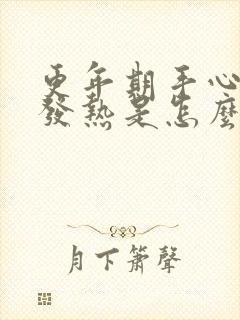 更年期手心
發熱是怎麼
月下簫聲